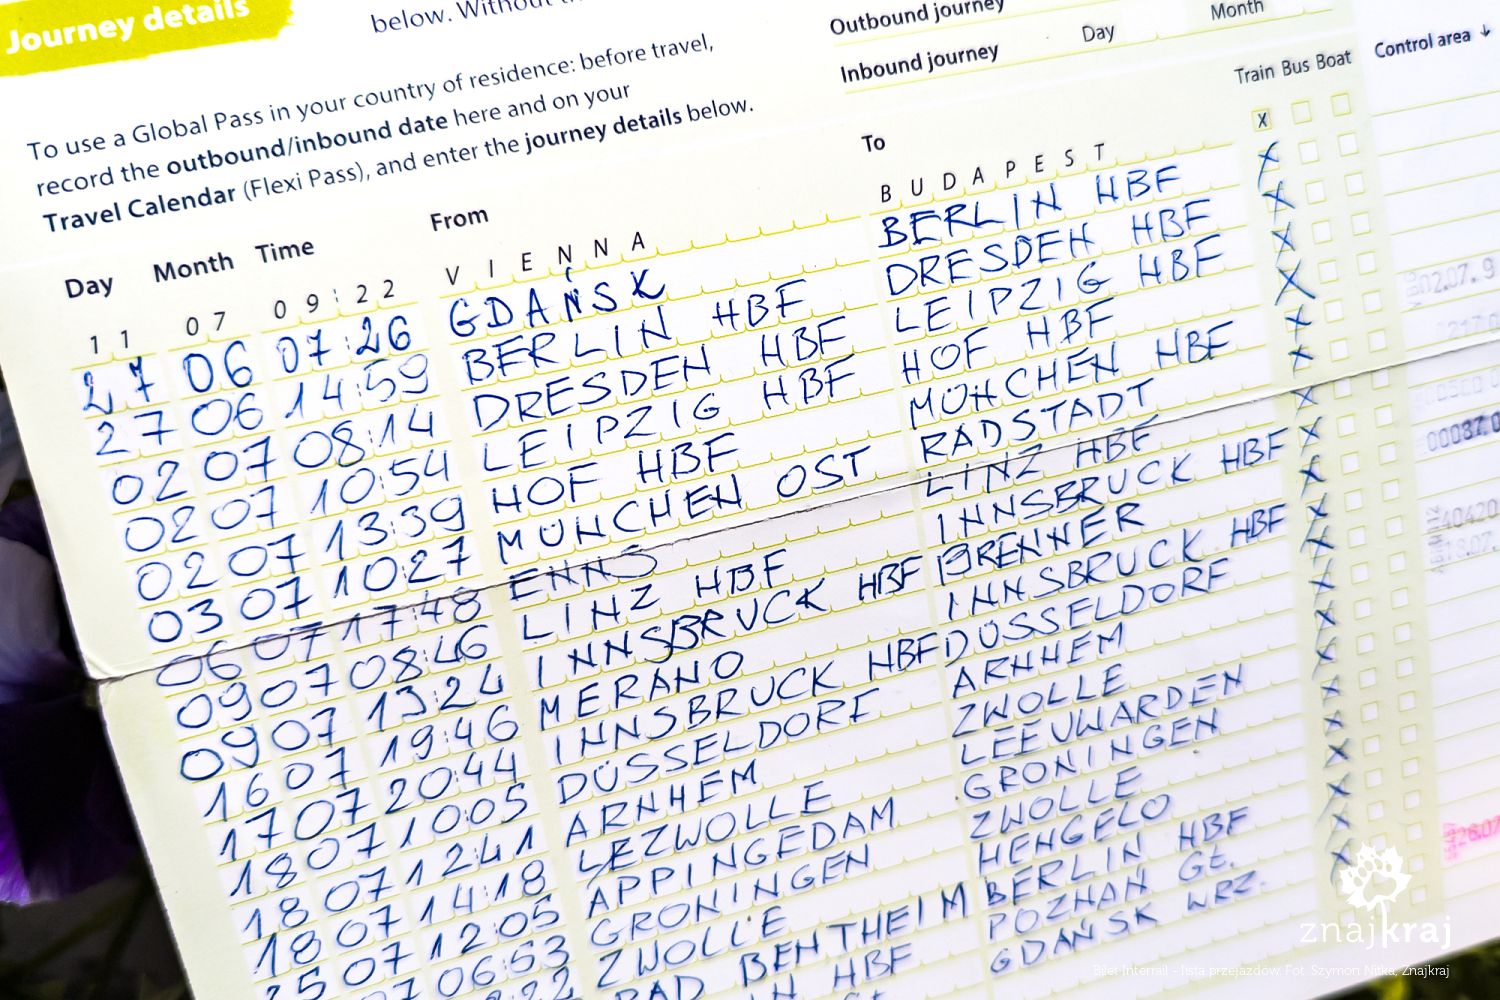 Journey details
below. Without
To use a Global Pass in your country of residence: before travel,
record the outbound/inbound date here and on your
Travel Calendar (Flexi Pass), and enter the journey details below.
Outbound journey
Inbound journey Day Month
Train Bus Boat Control area ↓
Day Month Time From To
11 07 09:22 VIENNA BUDAPEST x
27 06 07:26 GDAŃSK BERLIN HBF X
27 06 14:59 BERLIN HBF DRESDEN HBF X
02 07 08:14 DRESDEN HBF LEIPZIG HBF X
02 07 10:54 LEIPZIG HBF HOF HBF X
02 07 13:39 HOF HBF MÜNCHEN HBF X
03 07 10:27 MÜNCHEN OST RADSTADT X
06 07 17:48 ENNS LINZ HBF X
09 07 08:46 LINZ HBF INNSBRUCK HBF X
09 07 13:24 INNSBRUCK HBF BRENNER X
16 07 19:46 MERANO INNSBRUCK HBF X
17 07 20:44 INNSBRUCK HBF DÜSSELDORF X
18 07 10:05 DÜSSELDORF ARNHEM X
18 07 12:41 ARNHEM ZWOLLE X
18 07 14:18 ZWOLLE LEEUWARDEN X
25 07 12:05 APPINGEDAM GRONINGEN X
07 06:53 GRONINGEN ZWOLLE X
ZWOLLE HENGELO X
BAD BENTHEIM BERLIN HBF X
HBF POZNAŃ GŁ.
GDAŃSK WRZ.
02.07.9
00087.0
40420
18.07.
26.07
znajkraj
Bilet Interrail - lista przejazdów. Fot. Szymon Nitka, Znajkraj